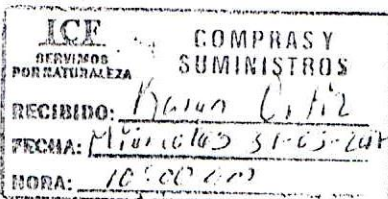 ICE
SERVIMOS
POR NATURALEZA
COMPRAS Y
SUMINISTROS
RECIBIDO:
FECHA: Miércoles 31-03-
HORA: 10:00 am